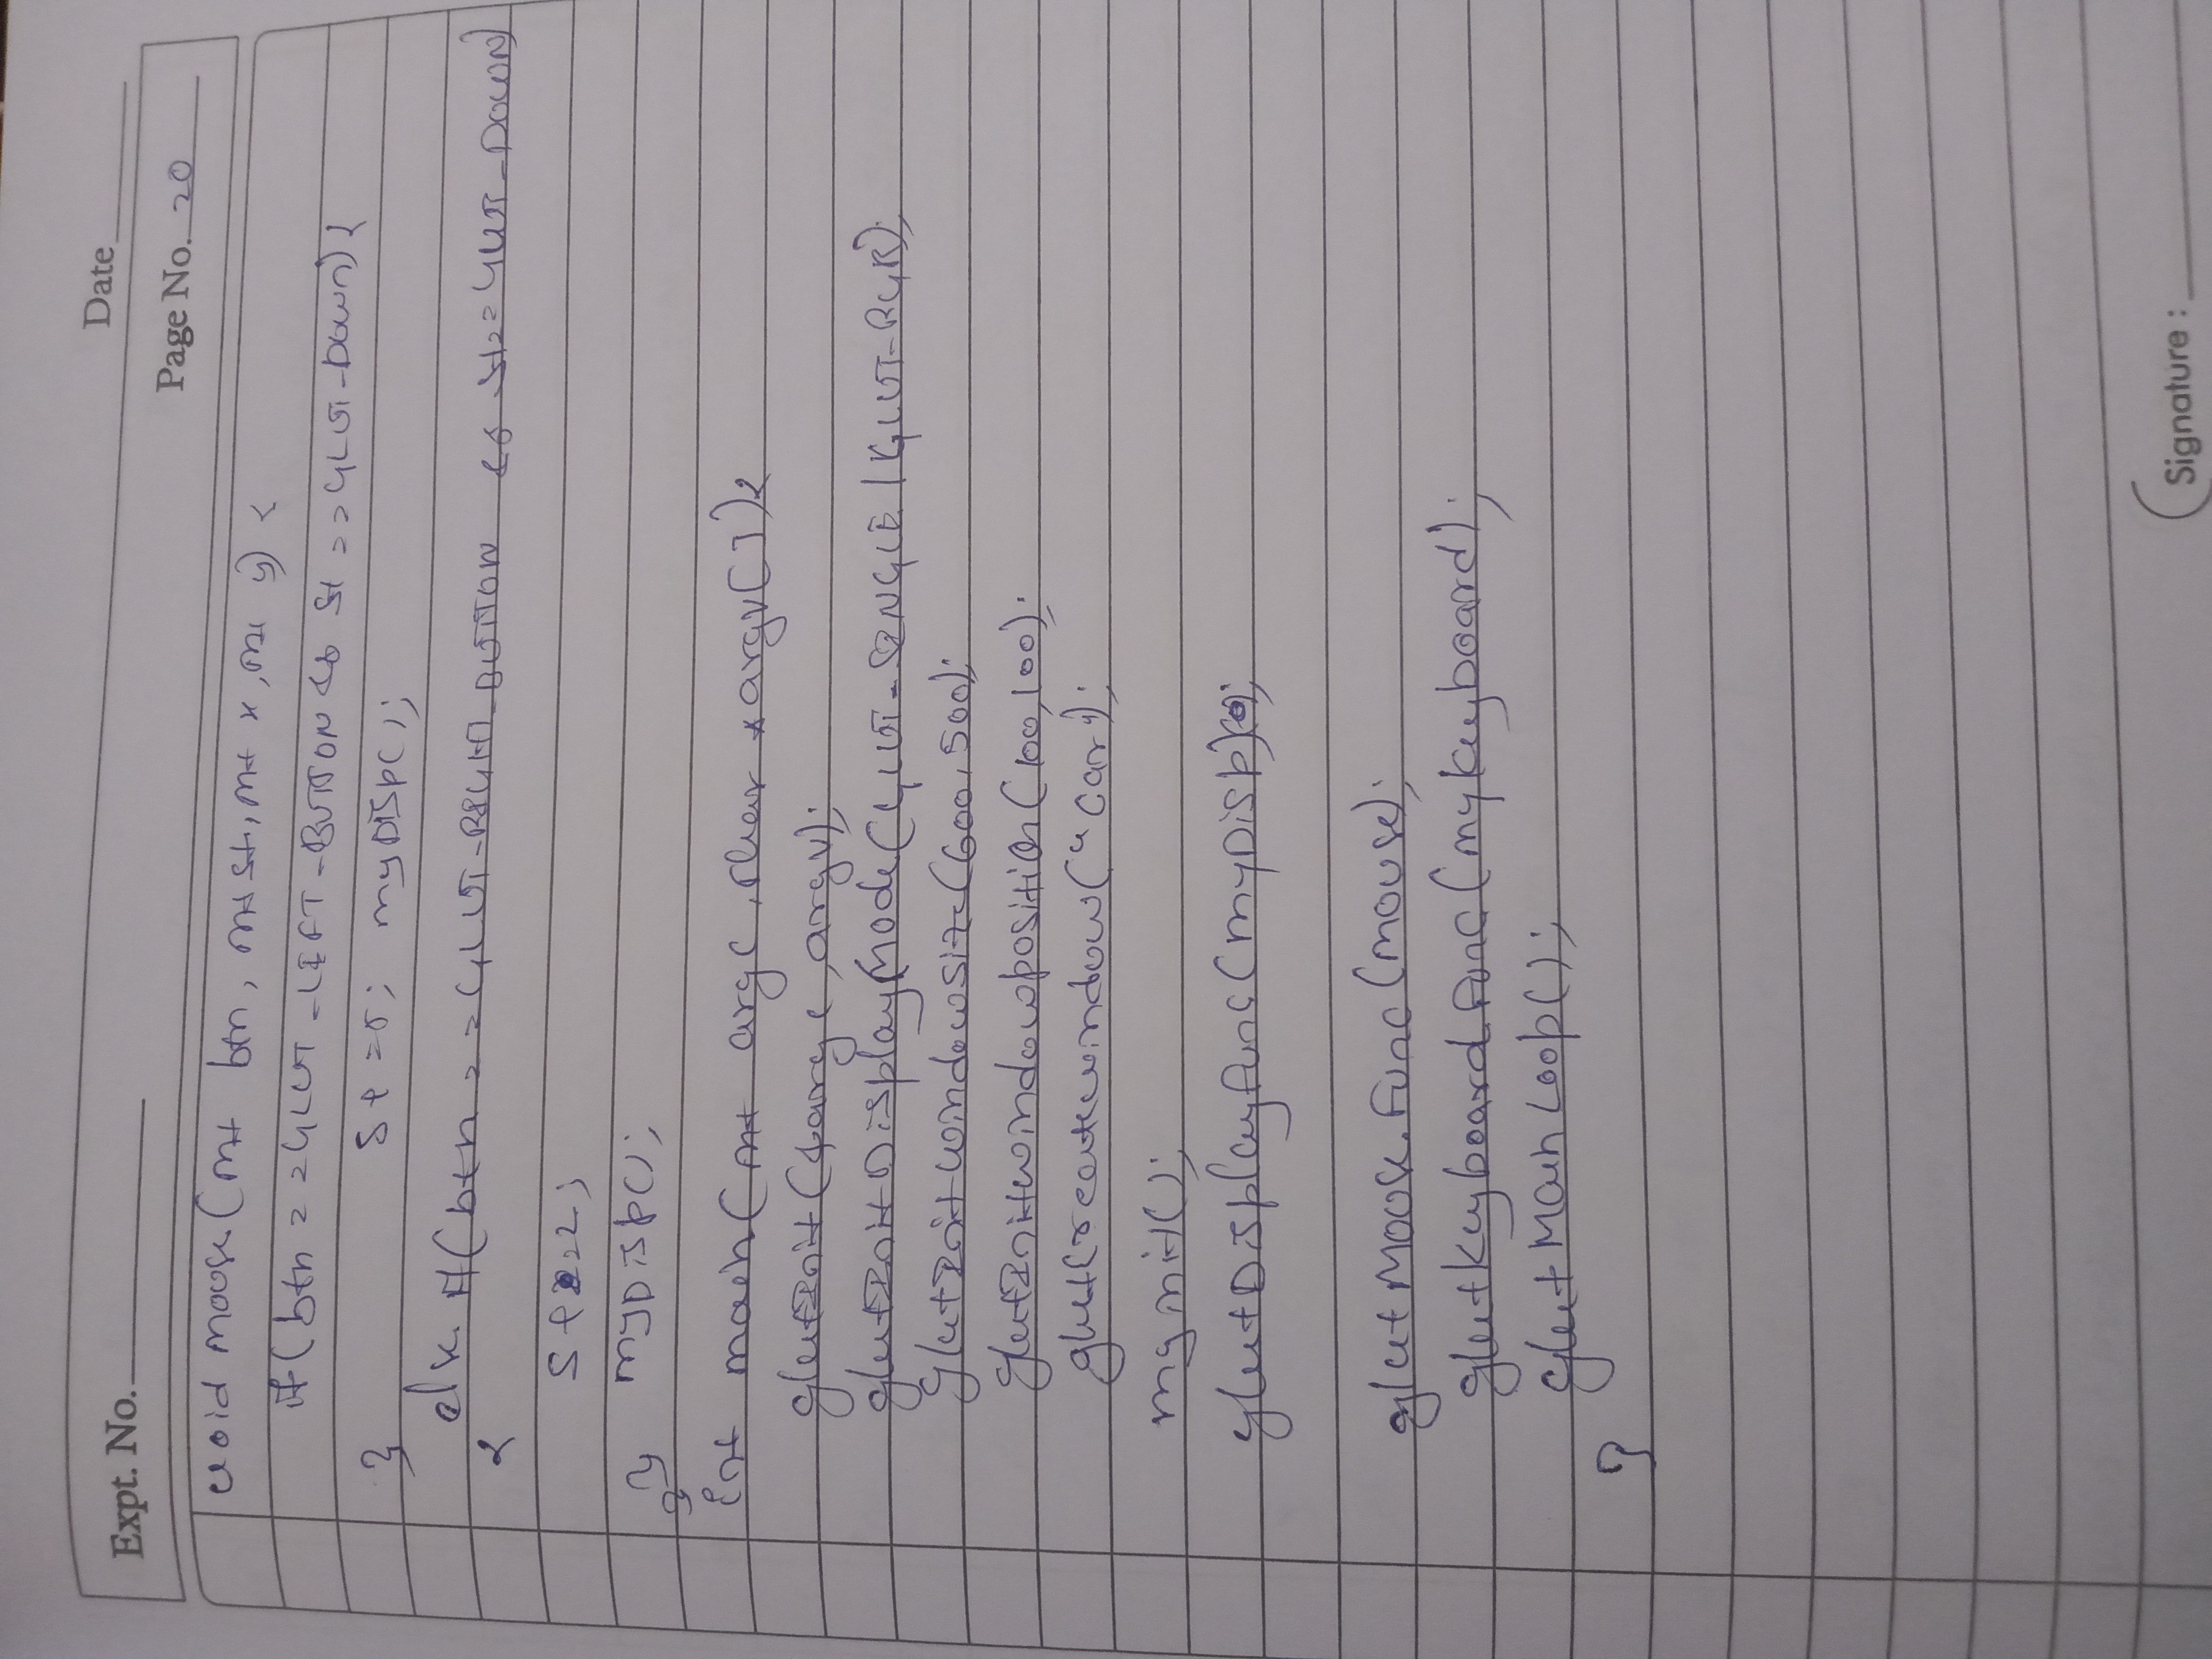 Date
Expt. No.
Page No. 20
void mouse(int btn, int st, int x, int y) {
if(btn == GLUT_LEFT_BUTTON && st == GLUT_DOWN) {
st = ; myDisp();
}
else if(btn == GLUT_RIGHT_BUTTON && st == GLUT_DOWN)
{
myDisp();
}
}
int main(int argc, char *argv[]) {
glutInit(&argc, argv);
glutInitDisplayMode(GLUT_SINGLE | GLUT_RGB);
glutInitWindowSize(600, 500);
glutInitWindowPosition(100, 100);
glutCreateWindow("Car");
myinit();
glutDisplayFunc(myDisp);
glutMouseFunc(mouse);
glutKeyboardFunc(mykeyboard);
glutMainLoop();
}
(Signature :